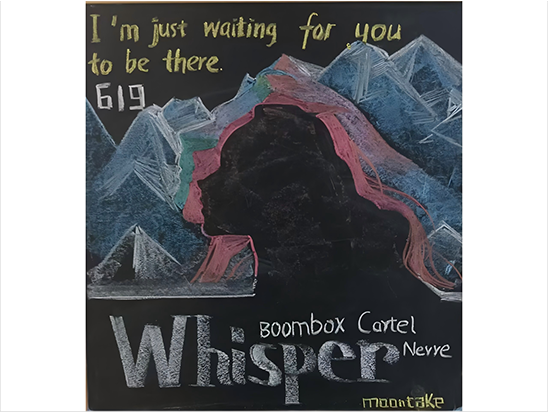 I'm just waiting for you
to be there.
619
Boombox Cartel
Whisper
Nevve
moontake